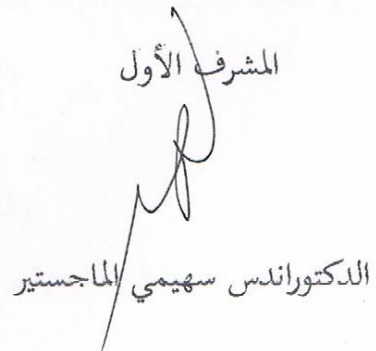 المشرف الأول
الدكتوراندس سهيمي الماجستير